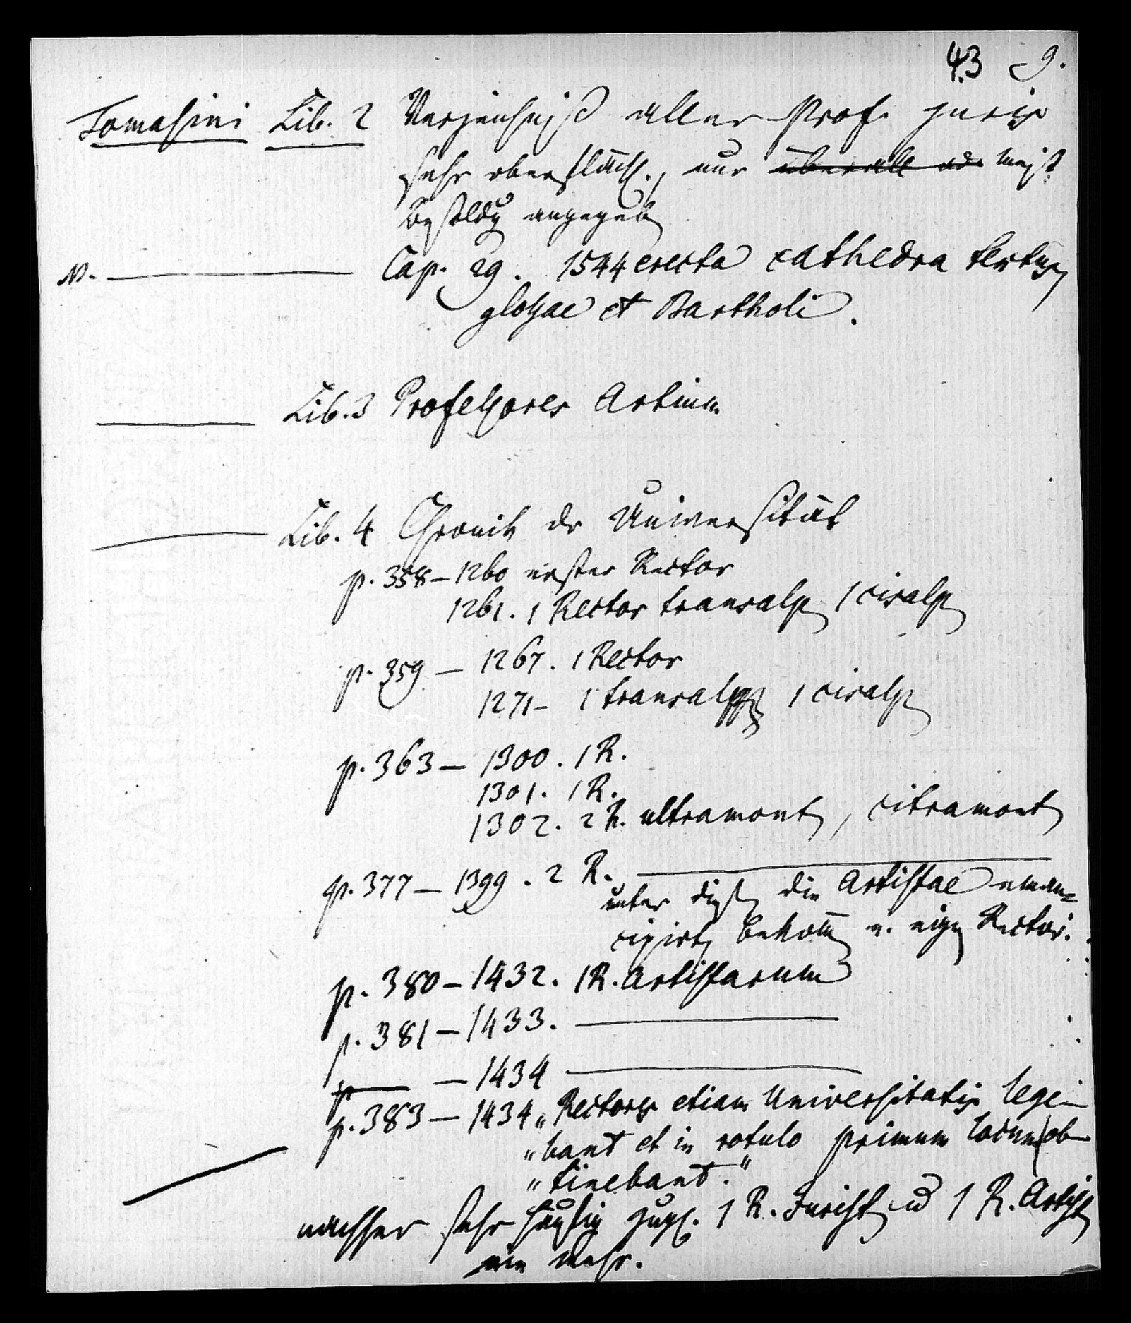 43 9.
Tomasini Lib. 2 Verzeichniß aller Prof. juris
sehr oberflächl., nur überall die meist
Besoldg angegeben
N. Cap. 29. 1544 erecta cathedra textus,
glossae et Bartholi.
Lib. 3 Professores Artium
Lib. 4 Chronik der Universität
p. 358 – 1260 erster Rector
1261. 1 Rector transalp. 1 cisalp.
p. 359 – 1267. 1 Rector
1271 – 1 transalp. 1 cisalp.
p. 363 – 1300. 1 R.
1301. 1 R.
1302. 2 R. ultramont., citramont.
p. 377 – 1399. 2 R.
unter diesen die Artistae eman-
cipirt, bekommen u. eignen Rector.
p. 380 – 1432. 1 R. Artistarum
p. 381 – 1433.
p. – 1434
p. 383 – 1434 „Rectores etiam Universitatis lege-
„bant et in rotulo primum locum ob-
„tinebant."
nachher sehr häufig zugl. 1 R. Jurist. u 1 R. Artist.
nie mehr.